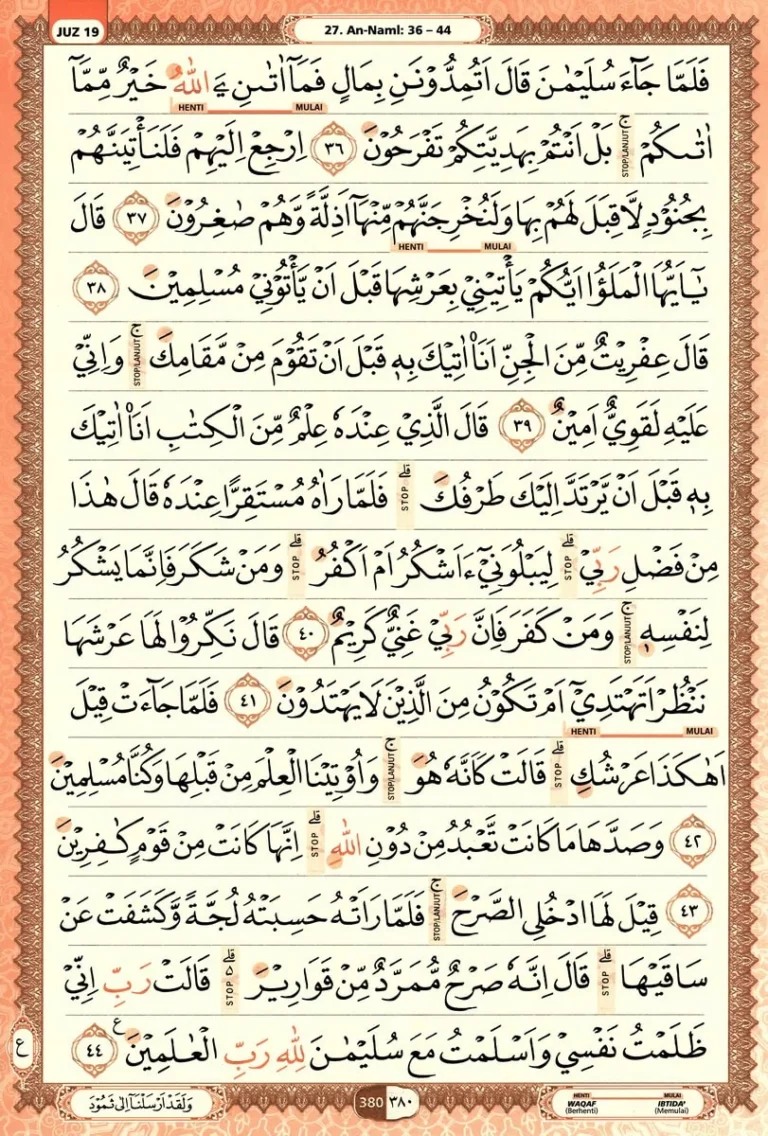 JUZ 19
27. An-Naml: 36 – 44
فَلَمَّا جَاۤءَ سُلَيْمٰنَ قَالَ اَتُمِدُّوْنَنِ بِمَالٍ فَمَآ اٰتٰىنِ ےَ اللّٰهُ خَيْرٌ مِّمَّآ
HENTI MULAI
اٰتٰىكُمْۚ بَلْ اَنْتُمْ بِهَدِيَّتِكُمْ تَفْرَحُوْنَ ٣٦ اِرْجِعْ اِلَيْهِمْ فَلَنَأْتِيَنَّهُمْ
STOP/LANJUT
بِجُنُوْدٍ لَّا قِبَلَ لَهُمْ بِهَا وَلَنُخْرِجَنَّهُمْ مِّنْهَآ اَذِلَّةً وَّهُمْ صٰغِرُوْنَ ٣٧ قَالَ
HENTI MULAI
يٰٓاَيُّهَا الْمَلَؤُا اَيُّكُمْ يَأْتِيْنِيْ بِعَرْشِهَا قَبْلَ اَنْ يَّأْتُوْنِيْ مُسْلِمِيْنَ ٣٨
قَالَ عِفْرِيْتٌ مِّنَ الْجِنِّ اَنَا۠ اٰتِيْكَ بِهٖ قَبْلَ اَنْ تَقُوْمَ مِنْ مَّقَامِكَۚ وَاِنِّيْ
STOP/LANJUT
عَلَيْهِ لَقَوِيٌّ اَمِيْنٌ ٣٩ قَالَ الَّذِيْ عِنْدَهٗ عِلْمٌ مِّنَ الْكِتٰبِ اَنَا۠ اٰتِيْكَ
بِهٖ قَبْلَ اَنْ يَّرْتَدَّ اِلَيْكَ طَرْفُكَۗ فَلَمَّا رَاٰهُ مُسْتَقِرًّا عِنْدَهٗ قَالَ هٰذَا
STOP
مِنْ فَضْلِ رَبِّيْۗ لِيَبْلُوَنِيْٓ ءَاَشْكُرُ اَمْ اَكْفُرُۗ وَمَنْ شَكَرَ فَاِنَّمَا يَشْكُرُ
STOP STOP
لِنَفْسِهٖۚ وَمَنْ كَفَرَ فَاِنَّ رَبِّيْ غَنِيٌّ كَرِيْمٌ ٤٠ قَالَ نَكِّرُوْا لَهَا عَرْشَهَا
١ STOP/LANJUT
نَنْظُرْ اَتَهْتَدِيْٓ اَمْ تَكُوْنُ مِنَ الَّذِيْنَ لَا يَهْتَدُوْنَ ٤١ فَلَمَّا جَاۤءَتْ قِيْلَ
HENTI MULAI
اَهٰكَذَا عَرْشُكِۗ قَالَتْ كَاَنَّهٗ هُوَۚ وَاُوْتِيْنَا الْعِلْمَ مِنْ قَبْلِهَا وَكُنَّا مُسْلِمِيْنَ
STOP STOP/LANJUT
٤٢ وَصَدَّهَا مَا كَانَتْ تَّعْبُدُ مِنْ دُوْنِ اللّٰهِۗ اِنَّهَا كَانَتْ مِنْ قَوْمٍ كٰفِرِيْنَ
STOP
٤٣ قِيْلَ لَهَا ادْخُلِى الصَّرْحَۚ فَلَمَّا رَاَتْهُ حَسِبَتْهُ لُجَّةً وَّكَشَفَتْ عَنْ
STOP/LANJUT
سَاقَيْهَاۗ قَالَ اِنَّهٗ صَرْحٌ مُّمَرَّدٌ مِّنْ قَوَارِيْرَۗ قَالَتْ رَبِّ اِنِّيْ
STOP STOP ۵
ظَلَمْتُ نَفْسِيْ وَاَسْلَمْتُ مَعَ سُلَيْمٰنَ لِلّٰهِ رَبِّ الْعٰلَمِيْنَ ࣖ ٤٤
ع
وَلَقَدْ اَرْسَلْنَآ اِلٰى ثَمُوْدَ
380 ٣٨٠
HENTI MULAI
WAQAF IBTIDA'
(Berhenti) (Memulai)